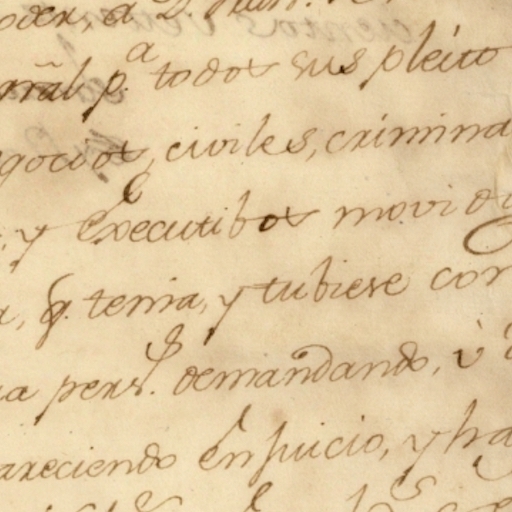 oder, a
rrãl p.ª todos sus pleito
gocios, civiles, crimina
y executibos movido
q. tenia, y tubiese con
a pers.ˢ demandando, ù
areciendo en Juicio, y ha